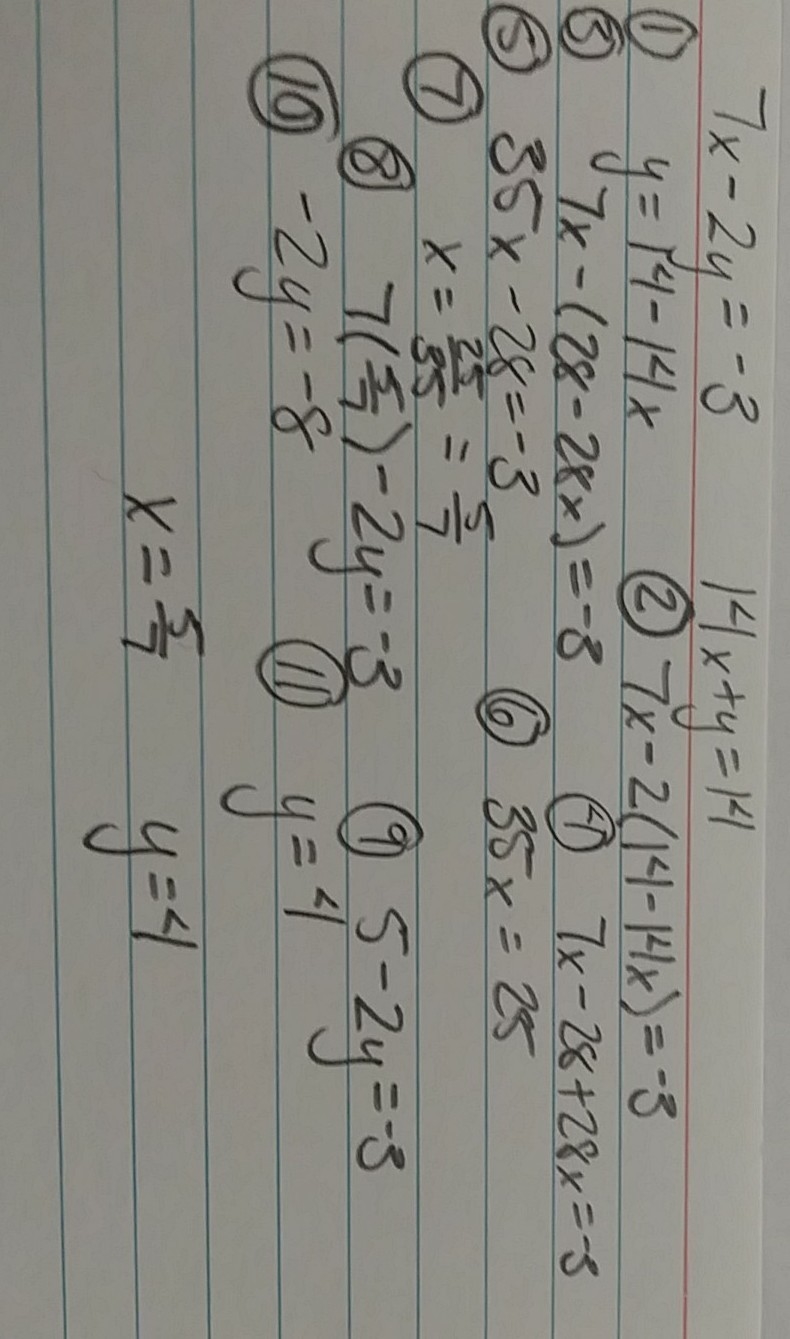 7x - 2y = -3    14x + y = 14
① y = 14 - 14x    ② 7x - 2(14 - 14x) = -3
③ 7x - (28 - 28x) = -3    ④ 7x - 28 + 28x = -3
⑤ 35x - 28 = -3    ⑥ 35x = 25
⑦ x = 25/35 = 5/7
⑧ 7(5/7) - 2y = -3    ⑨ 5 - 2y = -3
⑩ -2y = -8    ⑪ y = 4
x = 5/7    y = 4